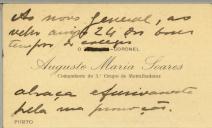 Ao novo general, ao
velho amigo 624 dos bons
tempos do
O CORONEL
Augusto Maria Soares
Comandante do 1.º Grupo de Metralhadoras
abraça efusivamente
pela sua promoção.
PORTO